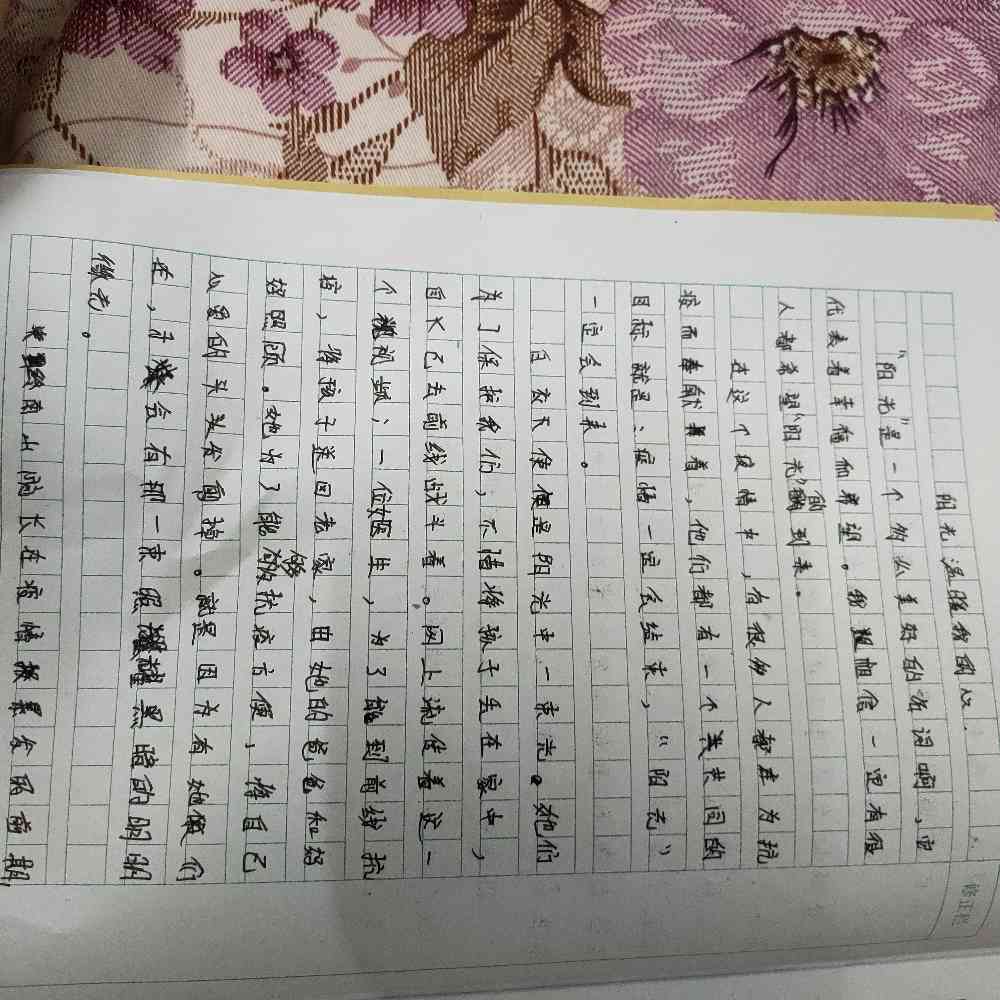 阳光温暖我的心.
“阳光”是一个多么美好的名词啊,它
代表着幸福和希望。我相信一定有很
人都希望“阳光”的到来.
在这个疫情中,有很多人都在为抗
疫而奉献着,他们都有一个共同的
目标就是:疫情一定会结束,“阳光”
一定会到来。
白衣天使便是阳光中一束光。她们
为了保护我们,不惜将孩子丢在家中,
自大己去前线战斗着。网上流传着这一
个视频;一位姬生,为了能到前线抗
疫,将孩子送回老家,由她的爸爸和妈
妈照顾。她为了能够抗疫方便,将自己
心爱的头发剪掉。就是因为有她们
在,才会有那一束照耀黑暗的明明
微光。
南山院长在疫情暴发的前期,
修正栏